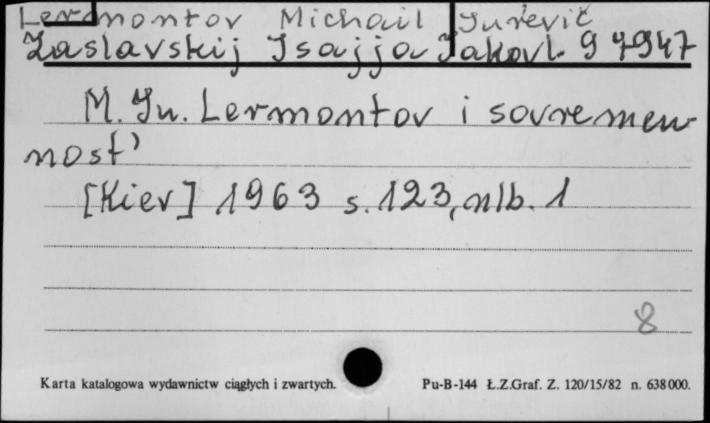 Lermontov Michail Jur'evič
Zaslavskij Isajja Jakovl. 97947
M. Ju. Lermontov i sovremen-
nost'
[Kiev] 1963 s. 123, nlb. 1
8
Karta katalogowa wydawnictw ciągłych i zwartych.
Pu-B-144 Ł.Z.Graf. Z. 120/15/82 n. 638000.